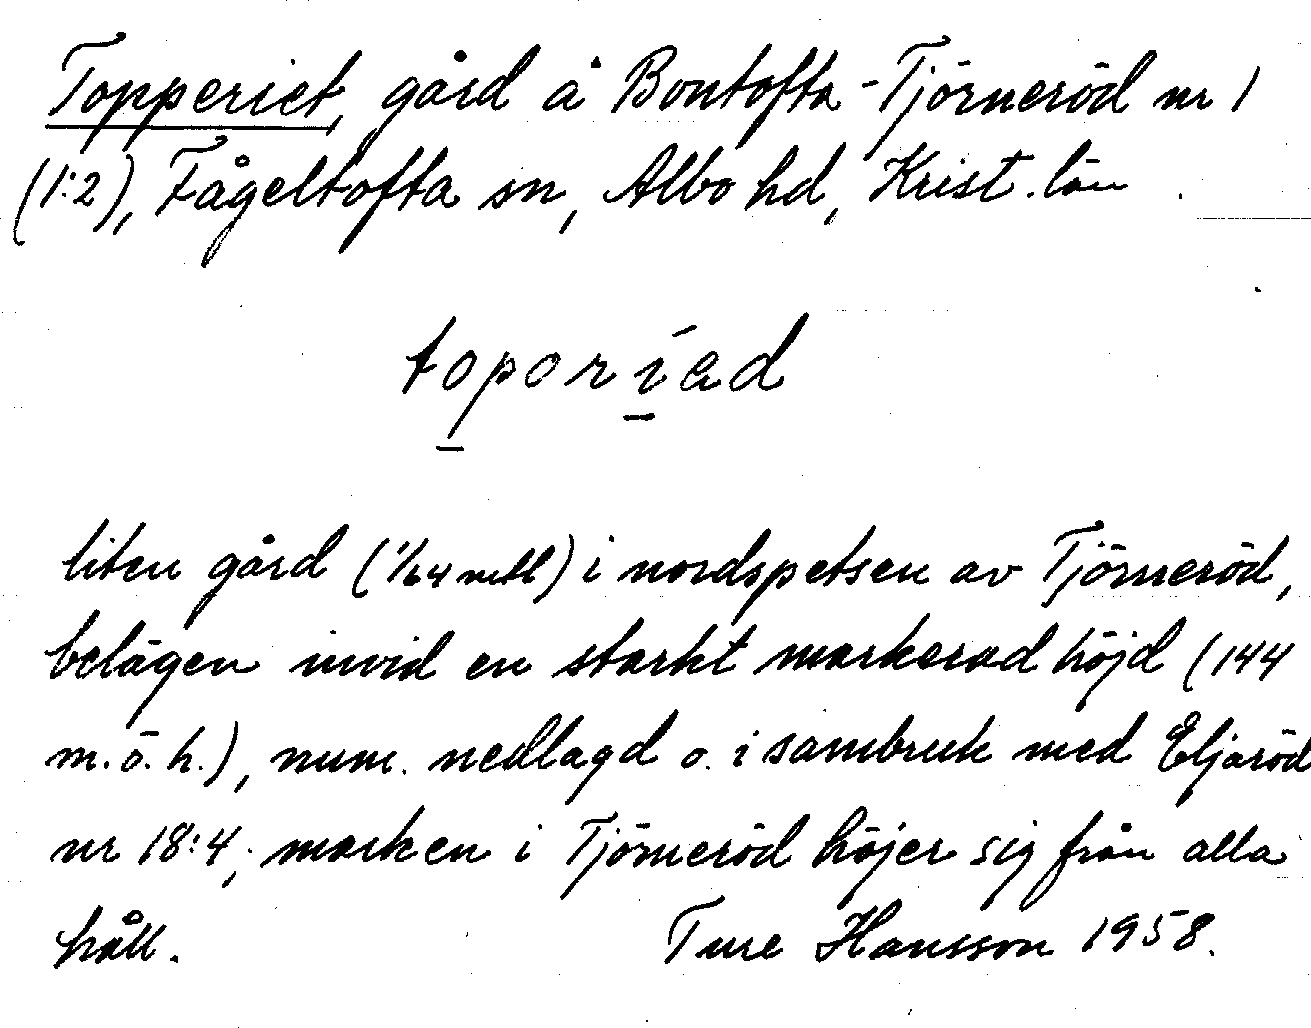 Topperiet, gård å Bontofta-Tjörneröd nr 1
(1:2), Fågeltofta sn, Albo hd, Krist. län
toporíad
liten gård (1/64 mtl) i nordspetsen av Tjörneröd,
belägen invid en starkt markerad höjd (144
m.ö.h.), num. nedlagd o. i sambruk med Eljaröd
nr 18:4; marken i Tjörneröd höjer sig från alla
håll.
Ture Hansson 1958.